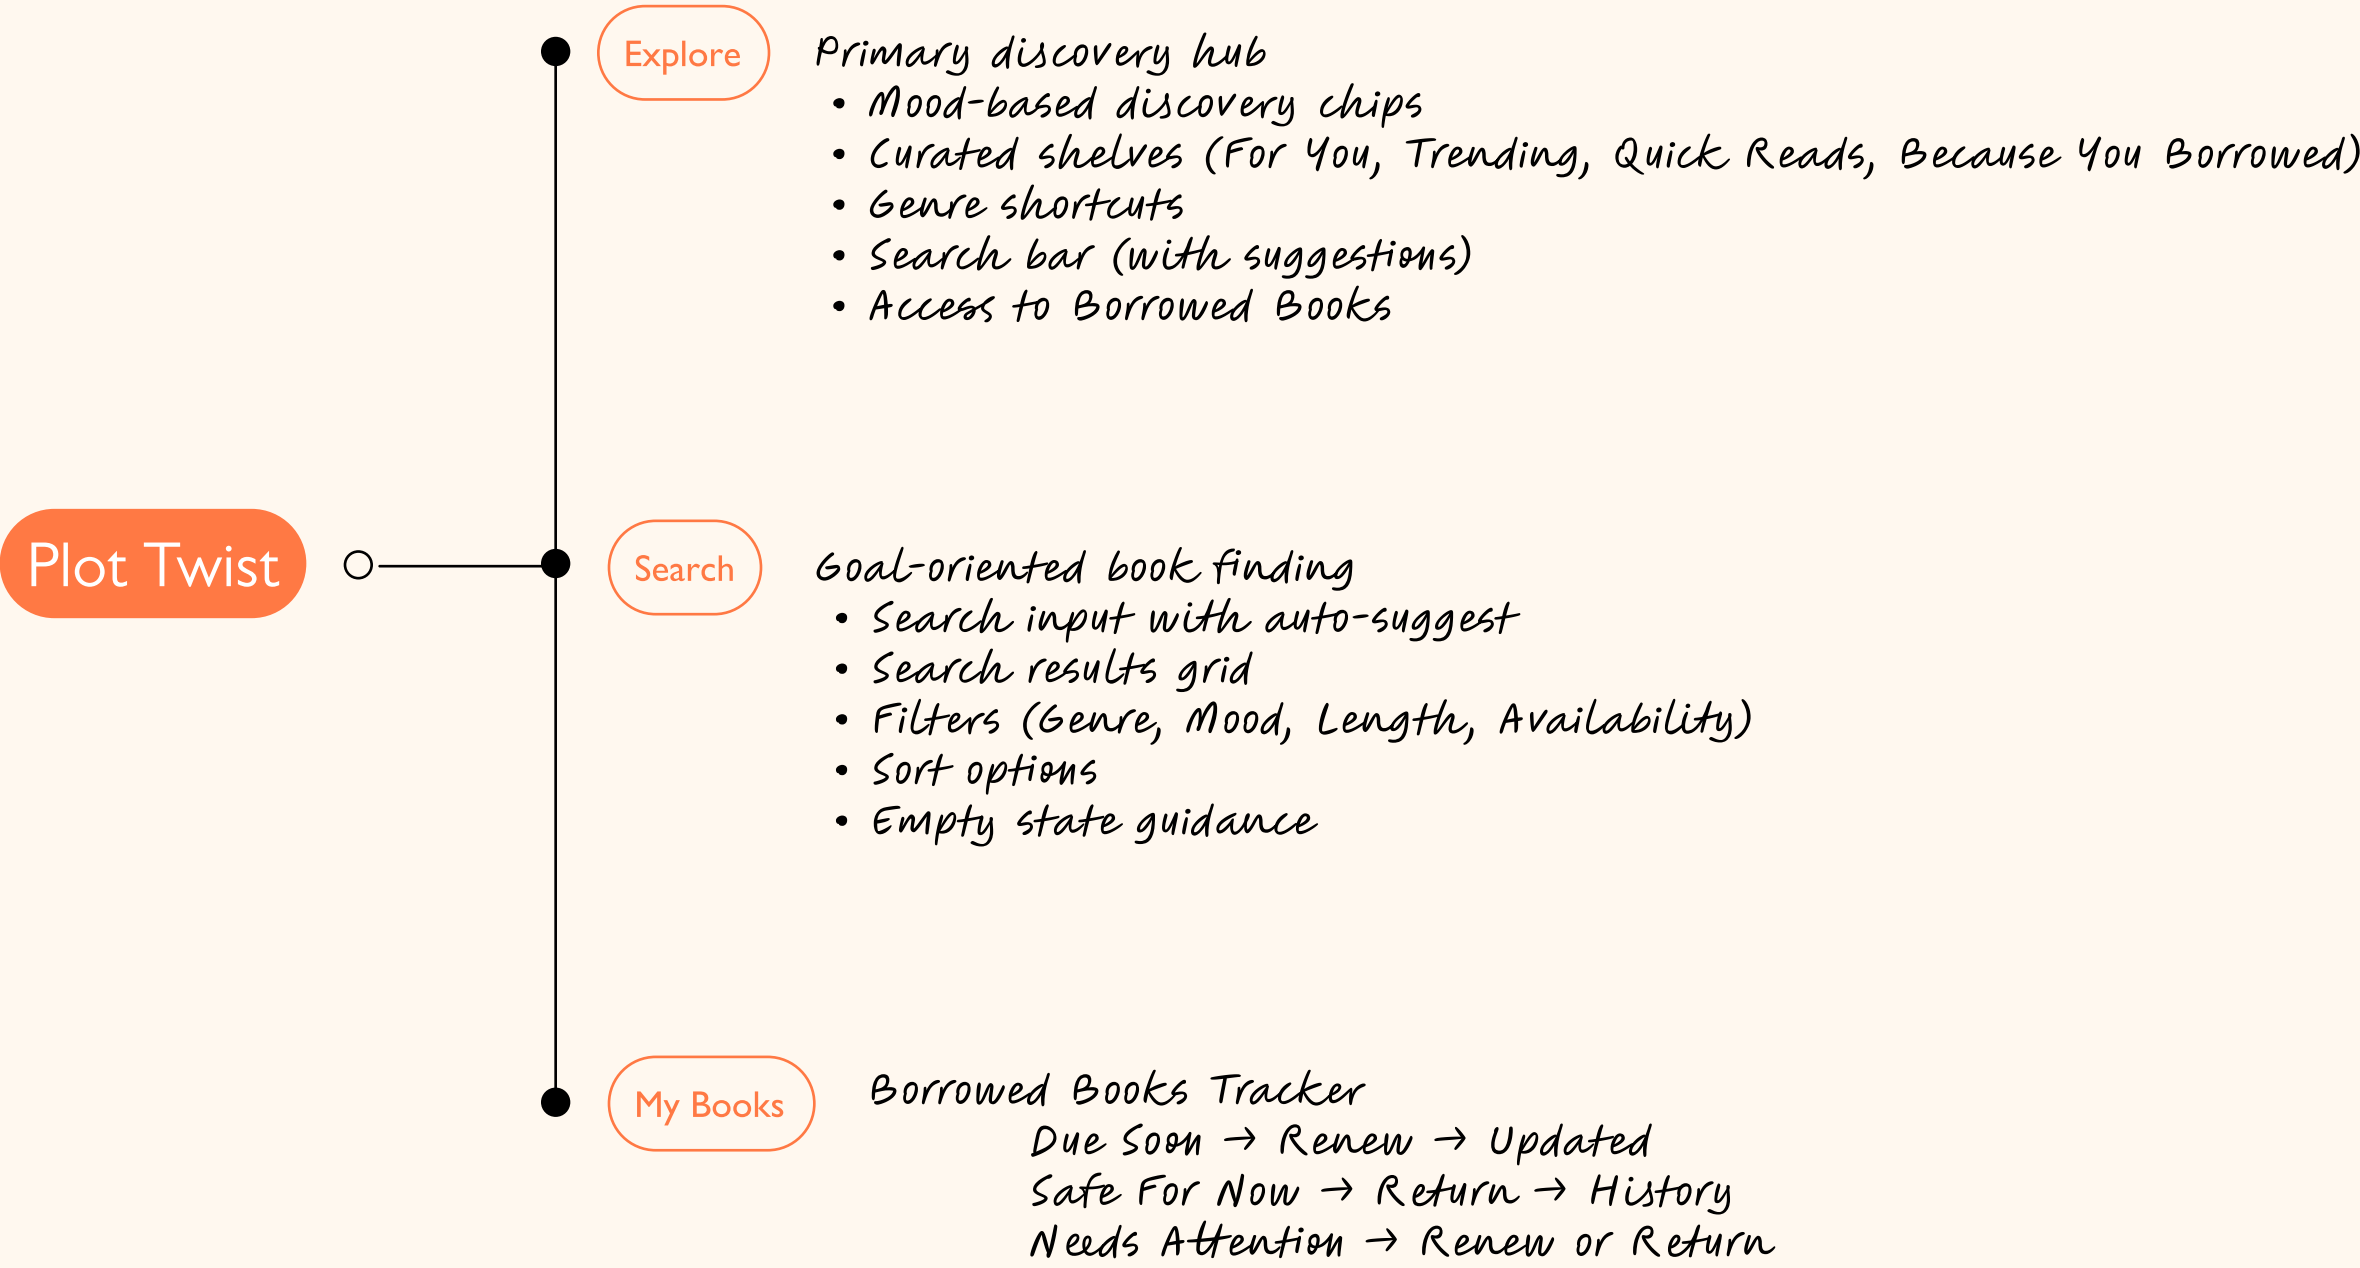 Explore
Primary discovery hub
• Mood-based discovery chips
• Curated shelves (For You, Trending, Quick Reads, Because You Borrowed)
• Genre shortcuts
• Search bar (with suggestions)
• Access to Borrowed Books
Plot Twist
Search
Goal-oriented book finding
• Search input with auto-suggest
• Search results grid
• Filters (Genre, Mood, Length, Availability)
• Sort options
• Empty state guidance
My Books
Borrowed Books Tracker
Due Soon → Renew → Updated
Safe For Now → Return → History
Needs Attention → Renew or Return